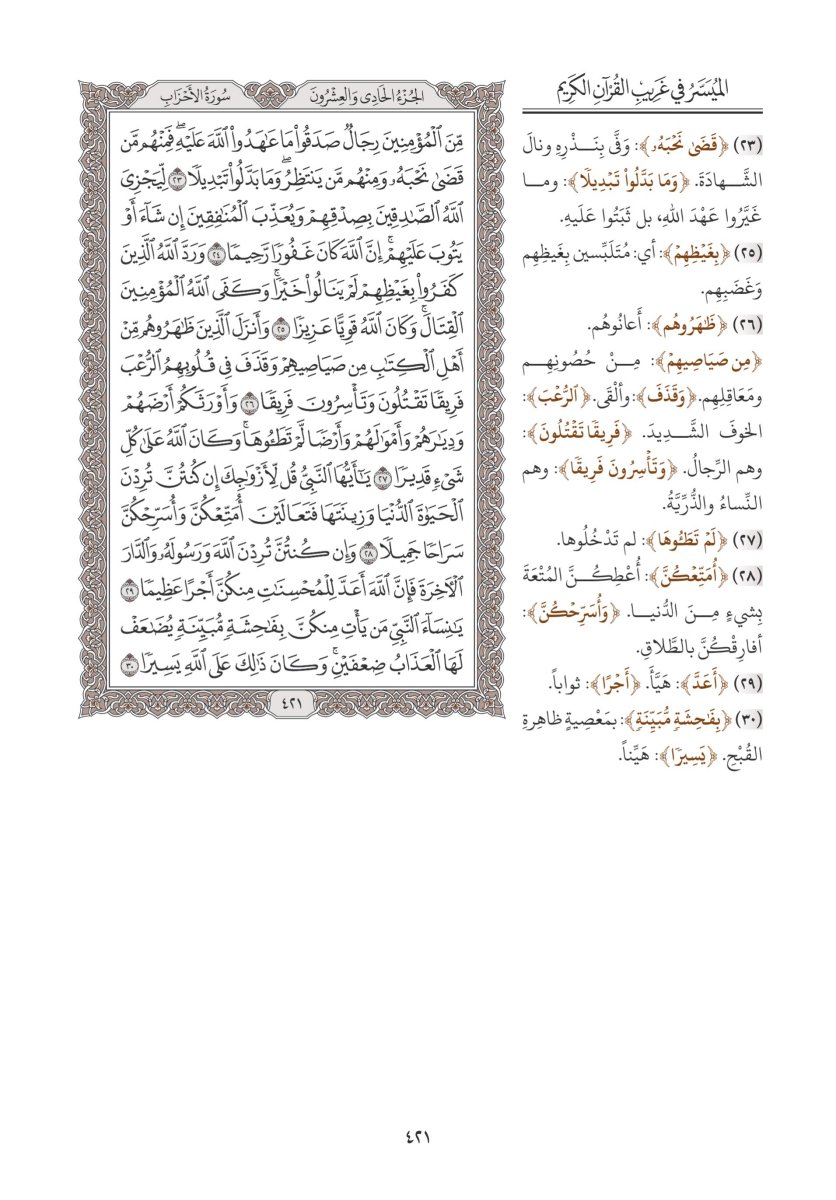 الميُسَّرُ في غَرِيبِ القُرْآنِ الكَرِيمِ
(٢٣) ﴿قَضَىٰ نَحْبَهُۥ﴾: وَفَّى بِنَذْرِهِ ونالَ
الشَّهادَةَ. ﴿وَمَا بَدَّلُوا۟ تَبْدِيلًا﴾: وما
غَيَّرُوا عَهْدَ اللهِ، بل ثَبَتُوا عَلَيهِ.
(٢٥) ﴿بِغَيْظِهِمْ﴾: أي: مُتَلَبِّسين بِغَيظِهِم
وَغَضَبِهِم.
(٢٦) ﴿ظَٰهَرُوهُم﴾: أَعانُوهُم.
﴿مِن صَيَاصِيهِمْ﴾: مِنْ حُصُونِهِم
ومَعَاقِلِهِم. ﴿وَقَذَفَ﴾: وألْقَى. ﴿ٱلرُّعْبَ﴾:
الخوفَ الشَّدِيدَ. ﴿فَرِيقًا تَقْتُلُونَ﴾:
وهم الرِّجالُ. ﴿وَتَأْسِرُونَ فَرِيقًا﴾: وهم
النِّساءُ والذُّرِّيَّةُ.
(٢٧) ﴿لَمْ تَطَـُٔوهَا﴾: لم تَدْخُلُوها.
(٢٨) ﴿أُمَتِّعْكُنَّ﴾: أُعْطِكُنَّ المُتْعَةَ
بِشيءٍ مِنَ الدُّنيا. ﴿وَأُسَرِّحْكُنَّ﴾:
أفارِقْكُنَّ بالطَّلاقِ.
(٢٩) ﴿أَعَدَّ﴾: هَيَّأَ. ﴿أَجْرًا﴾: ثواباً.
(٣٠) ﴿بِفَٰحِشَةٍ مُّبَيِّنَةٍ﴾: بمَعْصِيةٍ ظاهِرةِ
القُبْحِ. ﴿يَسِيرًا﴾: هَيِّناً.
الجُزْءُ الحَادِي وَالعِشْرُونَ سُورَةُ الأَحْزَابِ
مِّنَ ٱلْمُؤْمِنِينَ رِجَالٌ صَدَقُوا۟ مَا عَٰهَدُوا۟ ٱللَّهَ عَلَيْهِ ۖ فَمِنْهُم مَّن
قَضَىٰ نَحْبَهُۥ وَمِنْهُم مَّن يَنتَظِرُ ۖ وَمَا بَدَّلُوا۟ تَبْدِيلًا ٢٣ لِّيَجْزِىَ
ٱللَّهُ ٱلصَّٰدِقِينَ بِصِدْقِهِمْ وَيُعَذِّبَ ٱلْمُنَٰفِقِينَ إِن شَآءَ أَوْ
يَتُوبَ عَلَيْهِمْ ۚ إِنَّ ٱللَّهَ كَانَ غَفُورًا رَّحِيمًا ٢٤ وَرَدَّ ٱللَّهُ ٱلَّذِينَ
كَفَرُوا۟ بِغَيْظِهِمْ لَمْ يَنَالُوا۟ خَيْرًا ۚ وَكَفَى ٱللَّهُ ٱلْمُؤْمِنِينَ
ٱلْقِتَالَ ۚ وَكَانَ ٱللَّهُ قَوِيًّا عَزِيزًا ٢٥ وَأَنزَلَ ٱلَّذِينَ ظَٰهَرُوهُم مِّنْ
أَهْلِ ٱلْكِتَٰبِ مِن صَيَاصِيهِمْ وَقَذَفَ فِى قُلُوبِهِمُ ٱلرُّعْبَ
فَرِيقًا تَقْتُلُونَ وَتَأْسِرُونَ فَرِيقًا ٢٦ وَأَوْرَثَكُمْ أَرْضَهُمْ
وَدِيَٰرَهُمْ وَأَمْوَٰلَهُمْ وَأَرْضًا لَّمْ تَطَـُٔوهَا ۚ وَكَانَ ٱللَّهُ عَلَىٰ كُلِّ
شَىْءٍ قَدِيرًا ٢٧ يَٰٓأَيُّهَا ٱلنَّبِىُّ قُل لِّأَزْوَٰجِكَ إِن كُنتُنَّ تُرِدْنَ
ٱلْحَيَوٰةَ ٱلدُّنْيَا وَزِينَتَهَا فَتَعَالَيْنَ أُمَتِّعْكُنَّ وَأُسَرِّحْكُنَّ
سَرَاحًا جَمِيلًا ٢٨ وَإِن كُنتُنَّ تُرِدْنَ ٱللَّهَ وَرَسُولَهُۥ وَٱلدَّارَ
ٱلْءَاخِرَةَ فَإِنَّ ٱللَّهَ أَعَدَّ لِلْمُحْسِنَٰتِ مِنكُنَّ أَجْرًا عَظِيمًا ٢٩
يَٰنِسَآءَ ٱلنَّبِىِّ مَن يَأْتِ مِنكُنَّ بِفَٰحِشَةٍ مُّبَيِّنَةٍ يُضَٰعَفْ
لَهَا ٱلْعَذَابُ ضِعْفَيْنِ ۚ وَكَانَ ذَٰلِكَ عَلَى ٱللَّهِ يَسِيرًا ٣٠
٤٢١
٤٢١